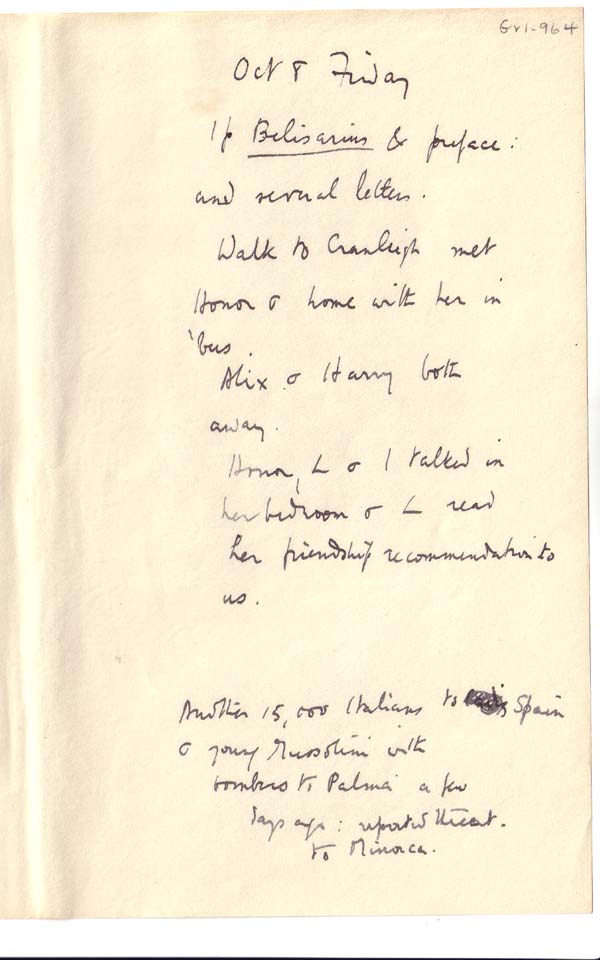 GR1-964
Oct 8 Friday
1 p Belisarius & preface :
and several letters.
Walk to Cranleigh met
Honor & home with her in
'bus.
Alix & Harry both
away.
Honor, L & I talked in
her bedroom & L read
her friendship recommendation to
us.
Another 15,000 Italians to Spain
& young Mussolini with
bombers to Palma a few
days ago : reported threat.
to Minorca.